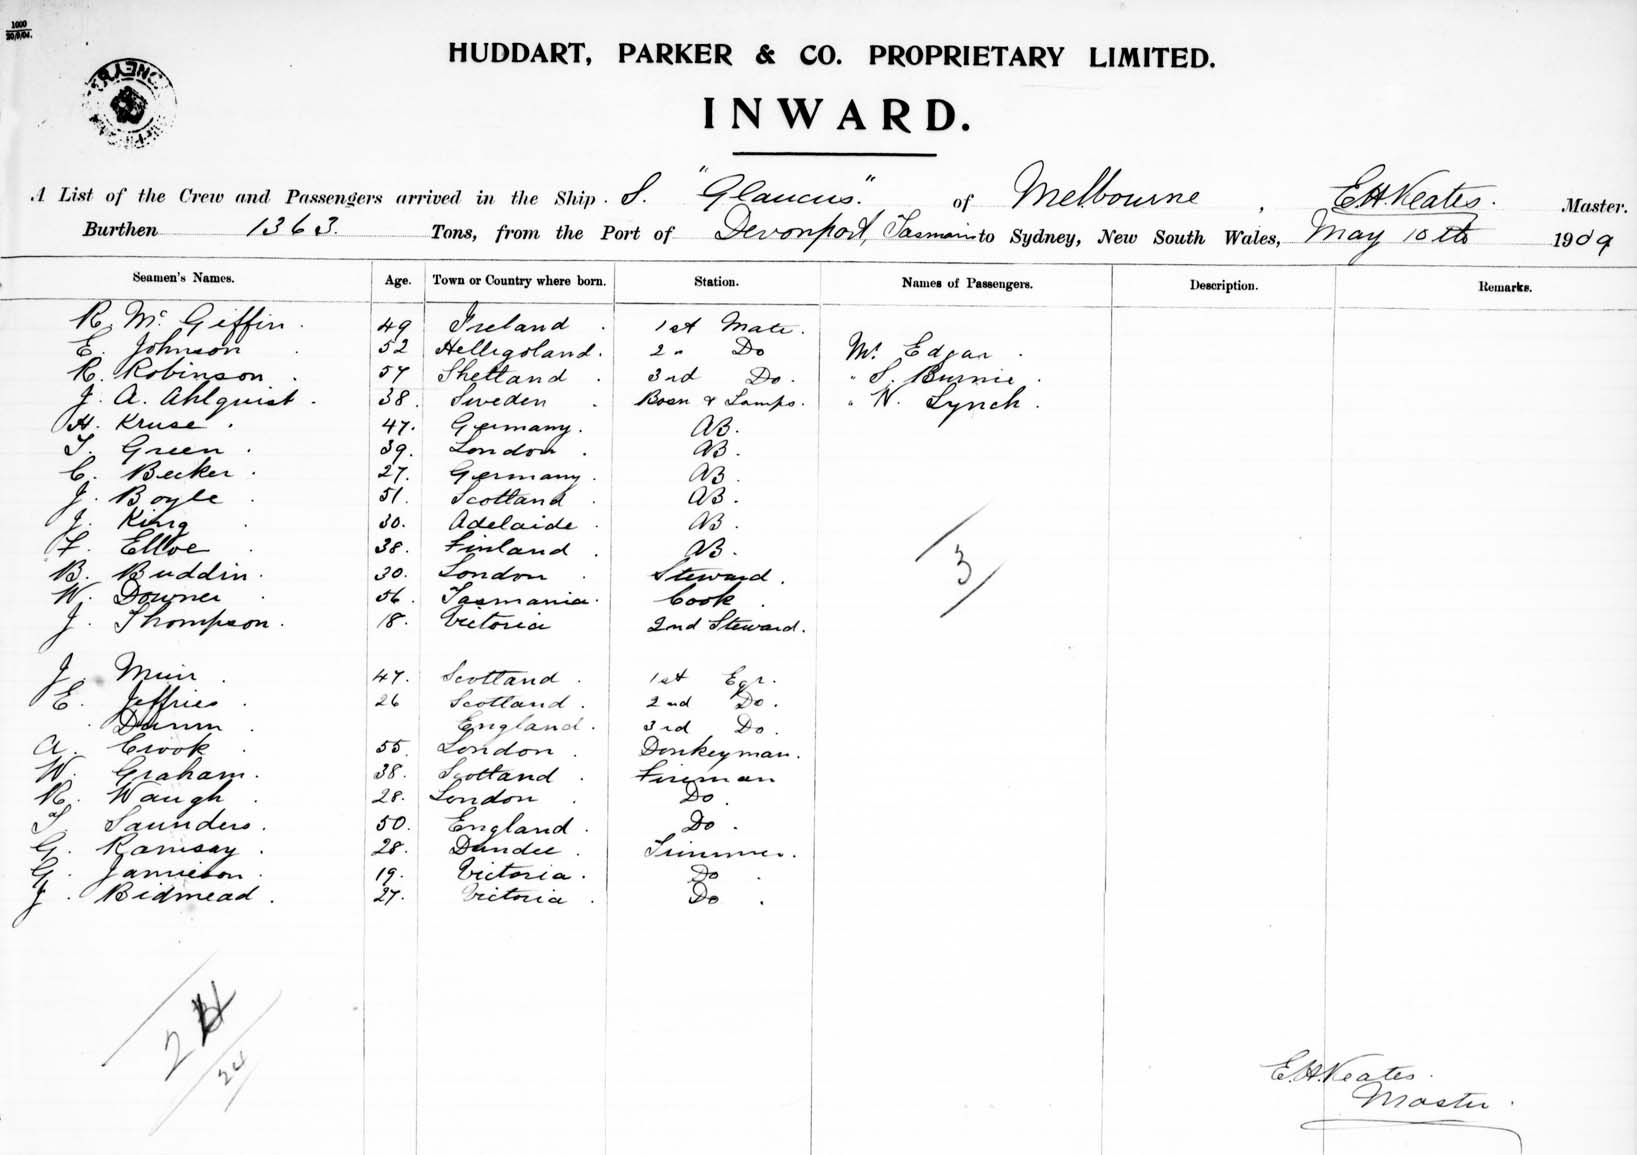 1000
20/9/04.
HUDDART, PARKER & CO. PROPRIETARY LIMITED.
INWARD.
A List of the Crew and Passengers arrived in the Ship. S. "Glaucus." of Melbourne, E.H. Keates. Master.
Burthen 1363. Tons, from the Port of Devonport, Tasmania to Sydney, New South Wales, May 10th 1909
Seamen's Names. Age. Town or Country where born. Station. Names of Passengers. Description. Remarks.
R. Mc Giffin. 49 Ireland. 1st Mate.
E. Johnson. 52 Helligoland. 2" Do Mr. Edgar.
R. Robinson. 57 Shetland. 3rd Do. " S. Burnie.
J. A. Ahlquist. 38. Sweden. Bosn & Lamps. " N. Lynch.
H. Kruse. 47. Germany. AB.
T. Green. 39. London. AB.
C. Becker. 27. Germany. AB.
J. Boyle. 51. Scotland. AB.
J. King. 30. Adelaide. AB.
F. Elloe. 38. Finland. AB.
B. Buddin. 30. London. Steward.
W. Downer. 56. Tasmania. Cook.
J. Thompson. 18. Victoria 2nd Steward.
J. Muir. 47. Scotland. 1st Egr.
E. Jeffries. 26 Scotland. 2nd Do.
Dunn. England. 3rd Do.
A. Crook. 55. London. Donkeyman.
W. Graham. 38. Scotland. Fireman
R. Waugh. 28. London. Do.
T. Saunders. 50. England. Do.
G. Ramsay. 28. Dundee. Trimmer.
G. Jamieson. 19. Victoria. Do.
J. Bidmead. 27. Victoria. Do.
3
24
E.H. Keates.
Master.